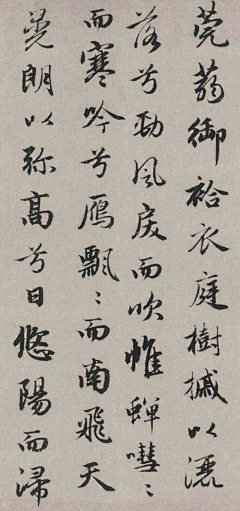 莞蒻御袷衣庭樹槭以灑
落兮勁風戾而吹帷蟬嘒〻
而寒吟兮鴈飄〻而南飛天
晃朗以弥高兮日悠陽而浸